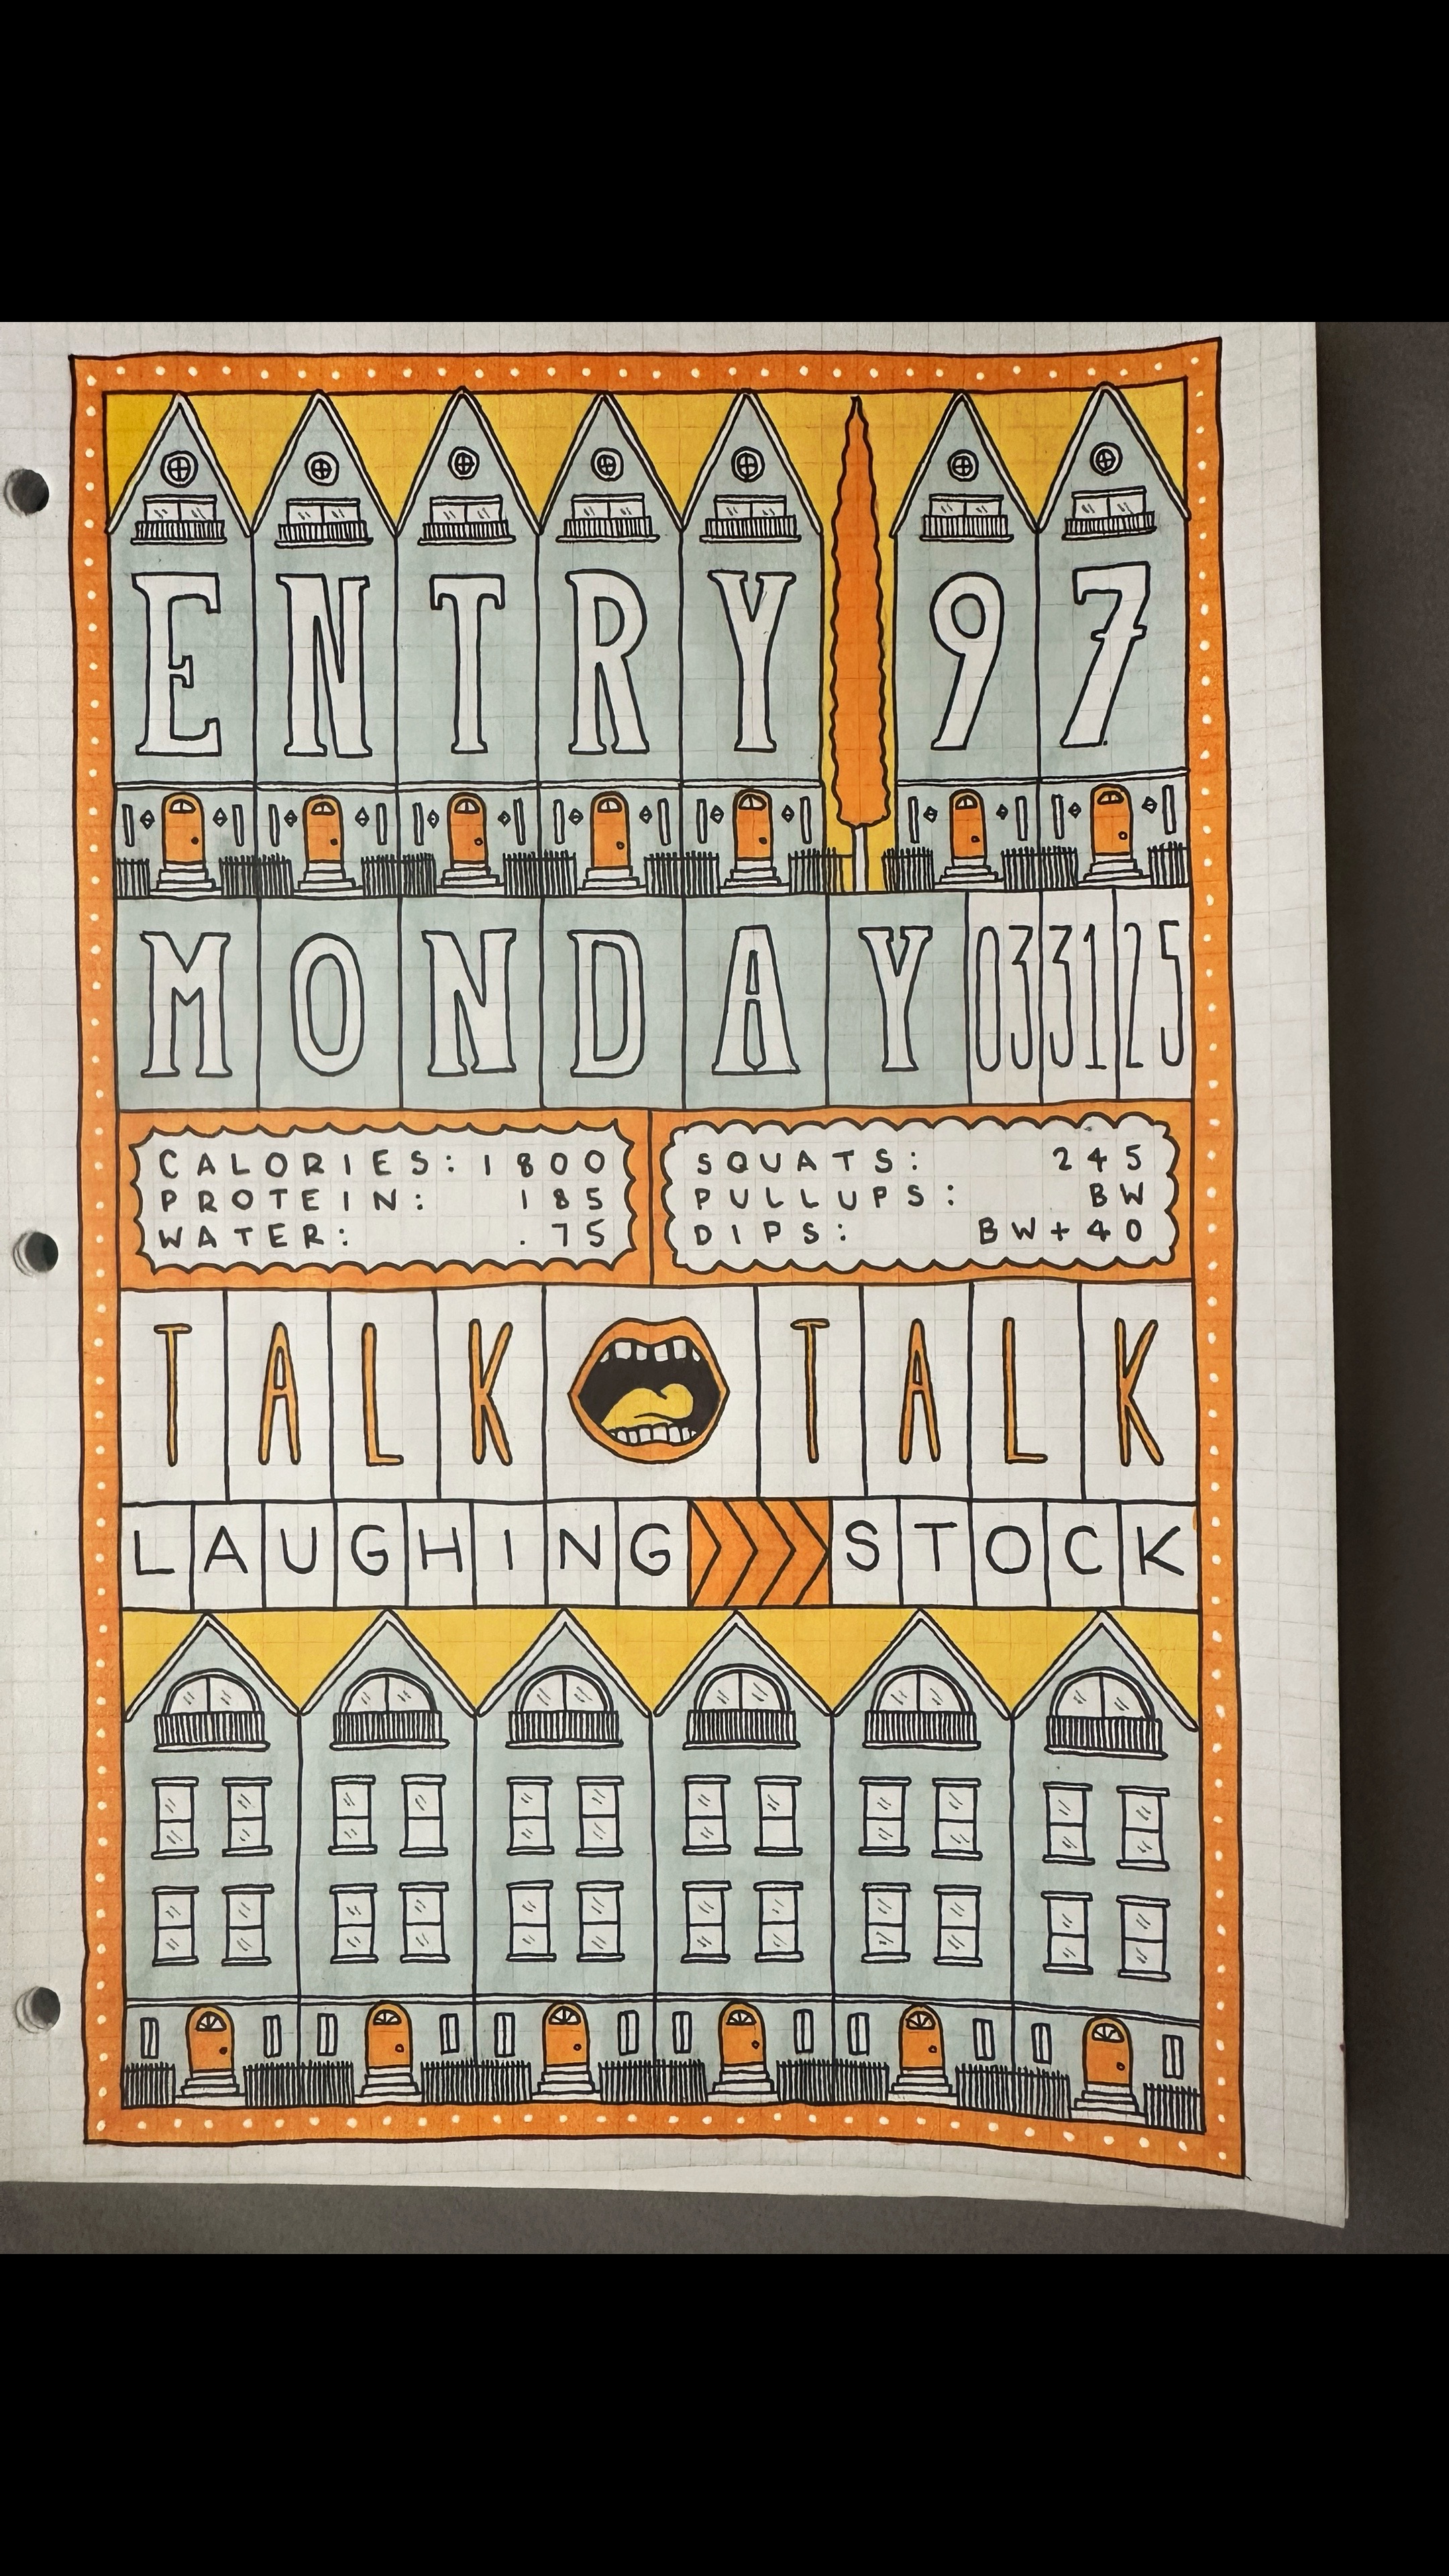 ENTRY 97
MONDAY 033125
CALORIES: 1800
PROTEIN: 185
WATER: .75
SQUATS: 245
PULLUPS: BW
DIPS: BW+40
TALK TALK
LAUGHING STOCK